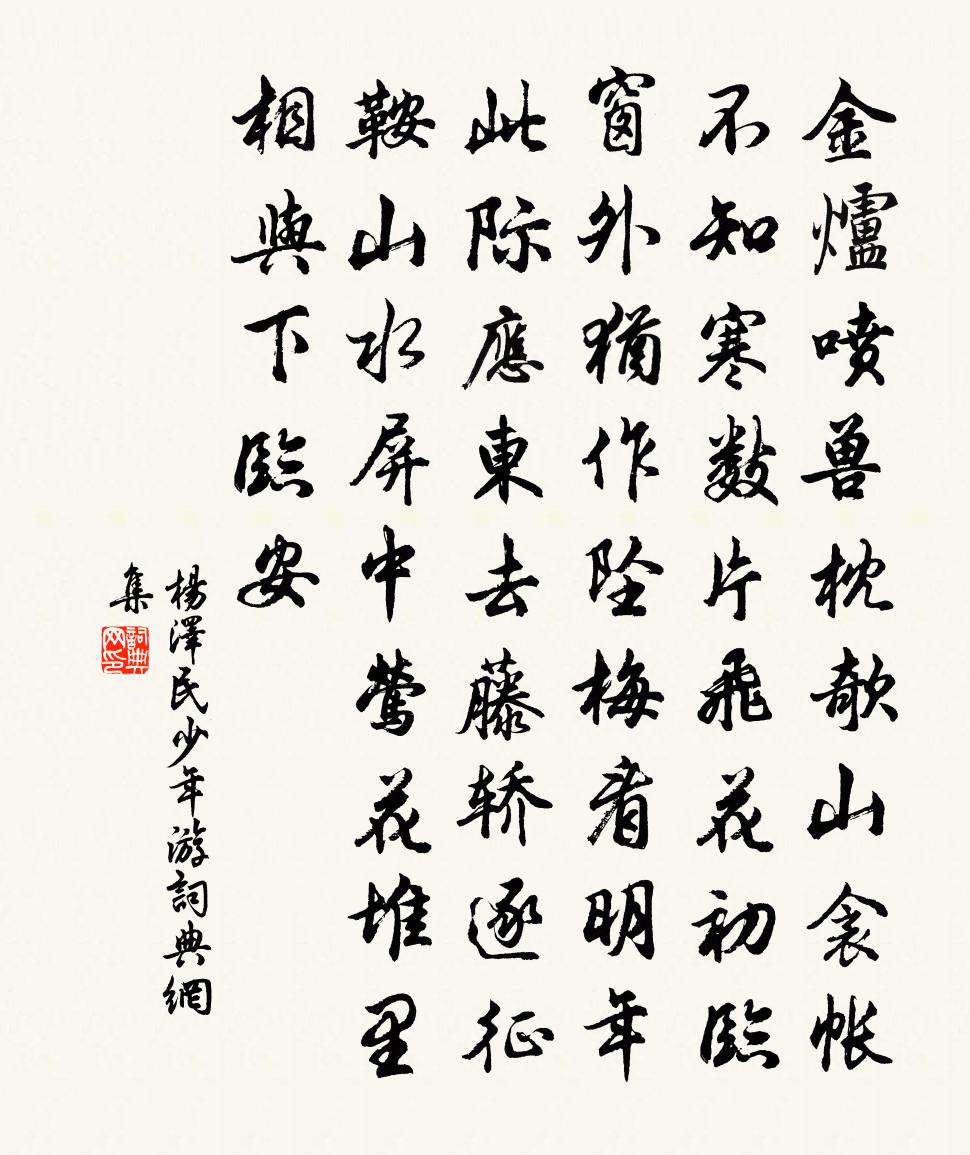 金爐喷兽枕欹山衾帐
不知寒数片飛花初臨
窗外猶作坠梅看明年
此际應東去藤轿逐征
鞍山水屏中莺花堆里
相與下臨安
楊澤民少年游詞典網
集
詞典网印